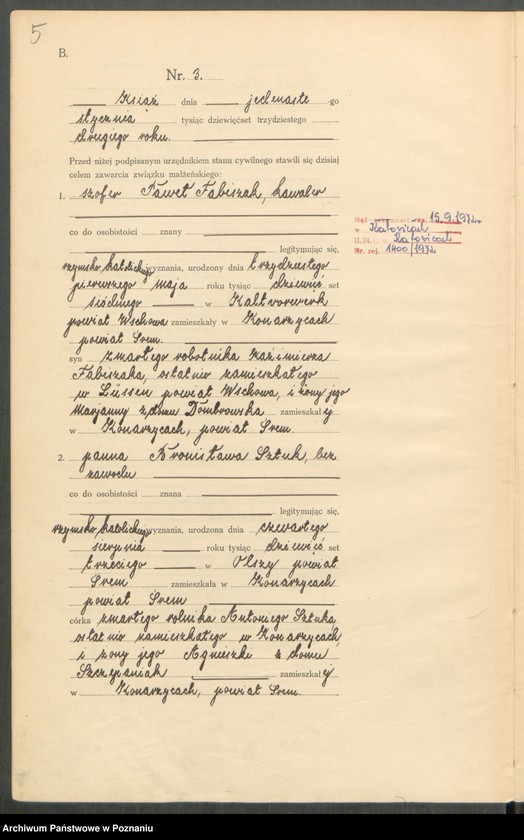 5
B.
Nr. 3.
Książ dnia jedenaste go
stycznia tysiąc dziewięćset trzydziestego
drugiego roku.
Przed niżej podpisanym urzędnikiem stanu cywilnego stawili się dzisiaj
celem zawarcia związku małżeńskiego:
1. szofer Paweł Fabiszak, kawaler
co do osobistości znany
legitymując się,
rzymsko katolickiego wyznania, urodzony dnia trzydziestego
pierwszego maja roku tysiąc dziewięć set
siódmego w Kaltvorwerk
powiat Wschowa zamieszkały w Konarzycach
powiat Śrem.
syn zmarłego robotnika Kaźimierza
Fabiszaka, ostatnio zamieszkałego
w Lüssen powiat Wschowa, i żony jego
Marjanny z domu Dombrowska zamieszkałej
w Konarzycach, powiat Śrem.
2. panna Bronisława Sztuk, bez
zawodu
co do osobistości znana
legitymując się,
rzymsko katolickiego wyznania, urodzona dnia czwartego
sierpnia roku tysiąc dziewięć set
trzeciego w Olszy powiat
Śrem zamieszkała w Konarzycach
powiat Śrem
córka zmarłego rolnika Antoniego Sztuka,
ostatnio zamieszkałego w Konarzycach
i żony jego Agnieszki z domu
Szczepaniak zamieszkałej
w Konarzycach, powiat Śrem.
15.9.1972
w Katowicach
Katowicach
Nr. rej. 1400/1972
Archiwum Państwowe w Poznaniu